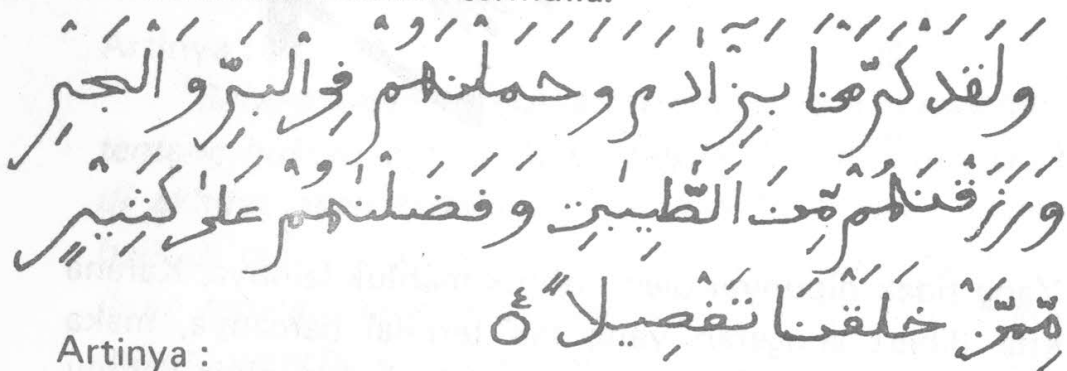 وَلَقَدْ كَرَّمْنَا بَنِيْ آدَمَ وَحَمَلْنٰهُمْ فِى الْبَرِّ وَالْبَحْرِ
وَرَزَقْنٰهُمْ مِّنَ الطَّيِّبٰتِ وَفَضَّلْنٰهُمْ عَلٰى كَثِيْرٍ
مِّمَّنْ خَلَقْنَا تَفْضِيْلًا
Artinya :